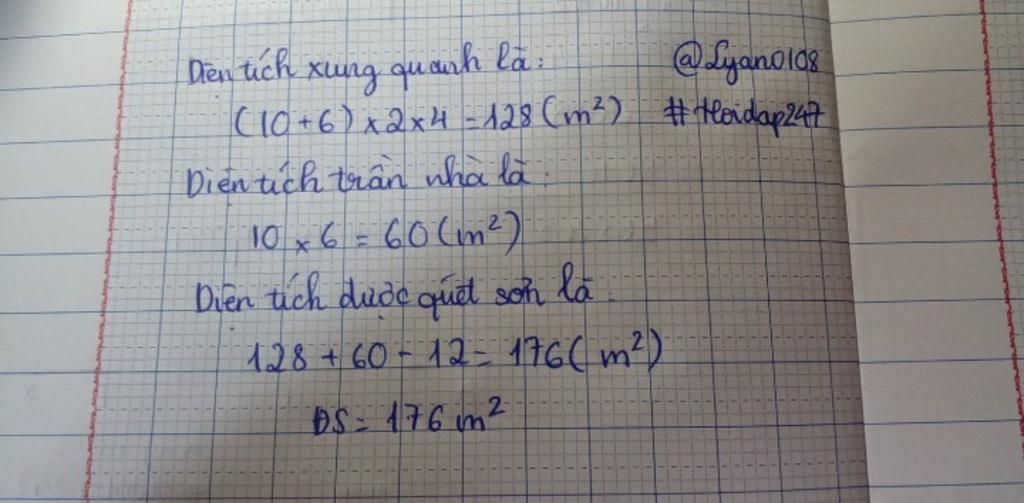 Diện tích xung quanh là: @Lyano108
(10+6)×2×4=128(m²) #Hoidap247
Diện tích trần nhà là:
10×6=60(m²)
Diện tích được quét sơn là:
128+60-12=176(m²)
ĐS= 176m²